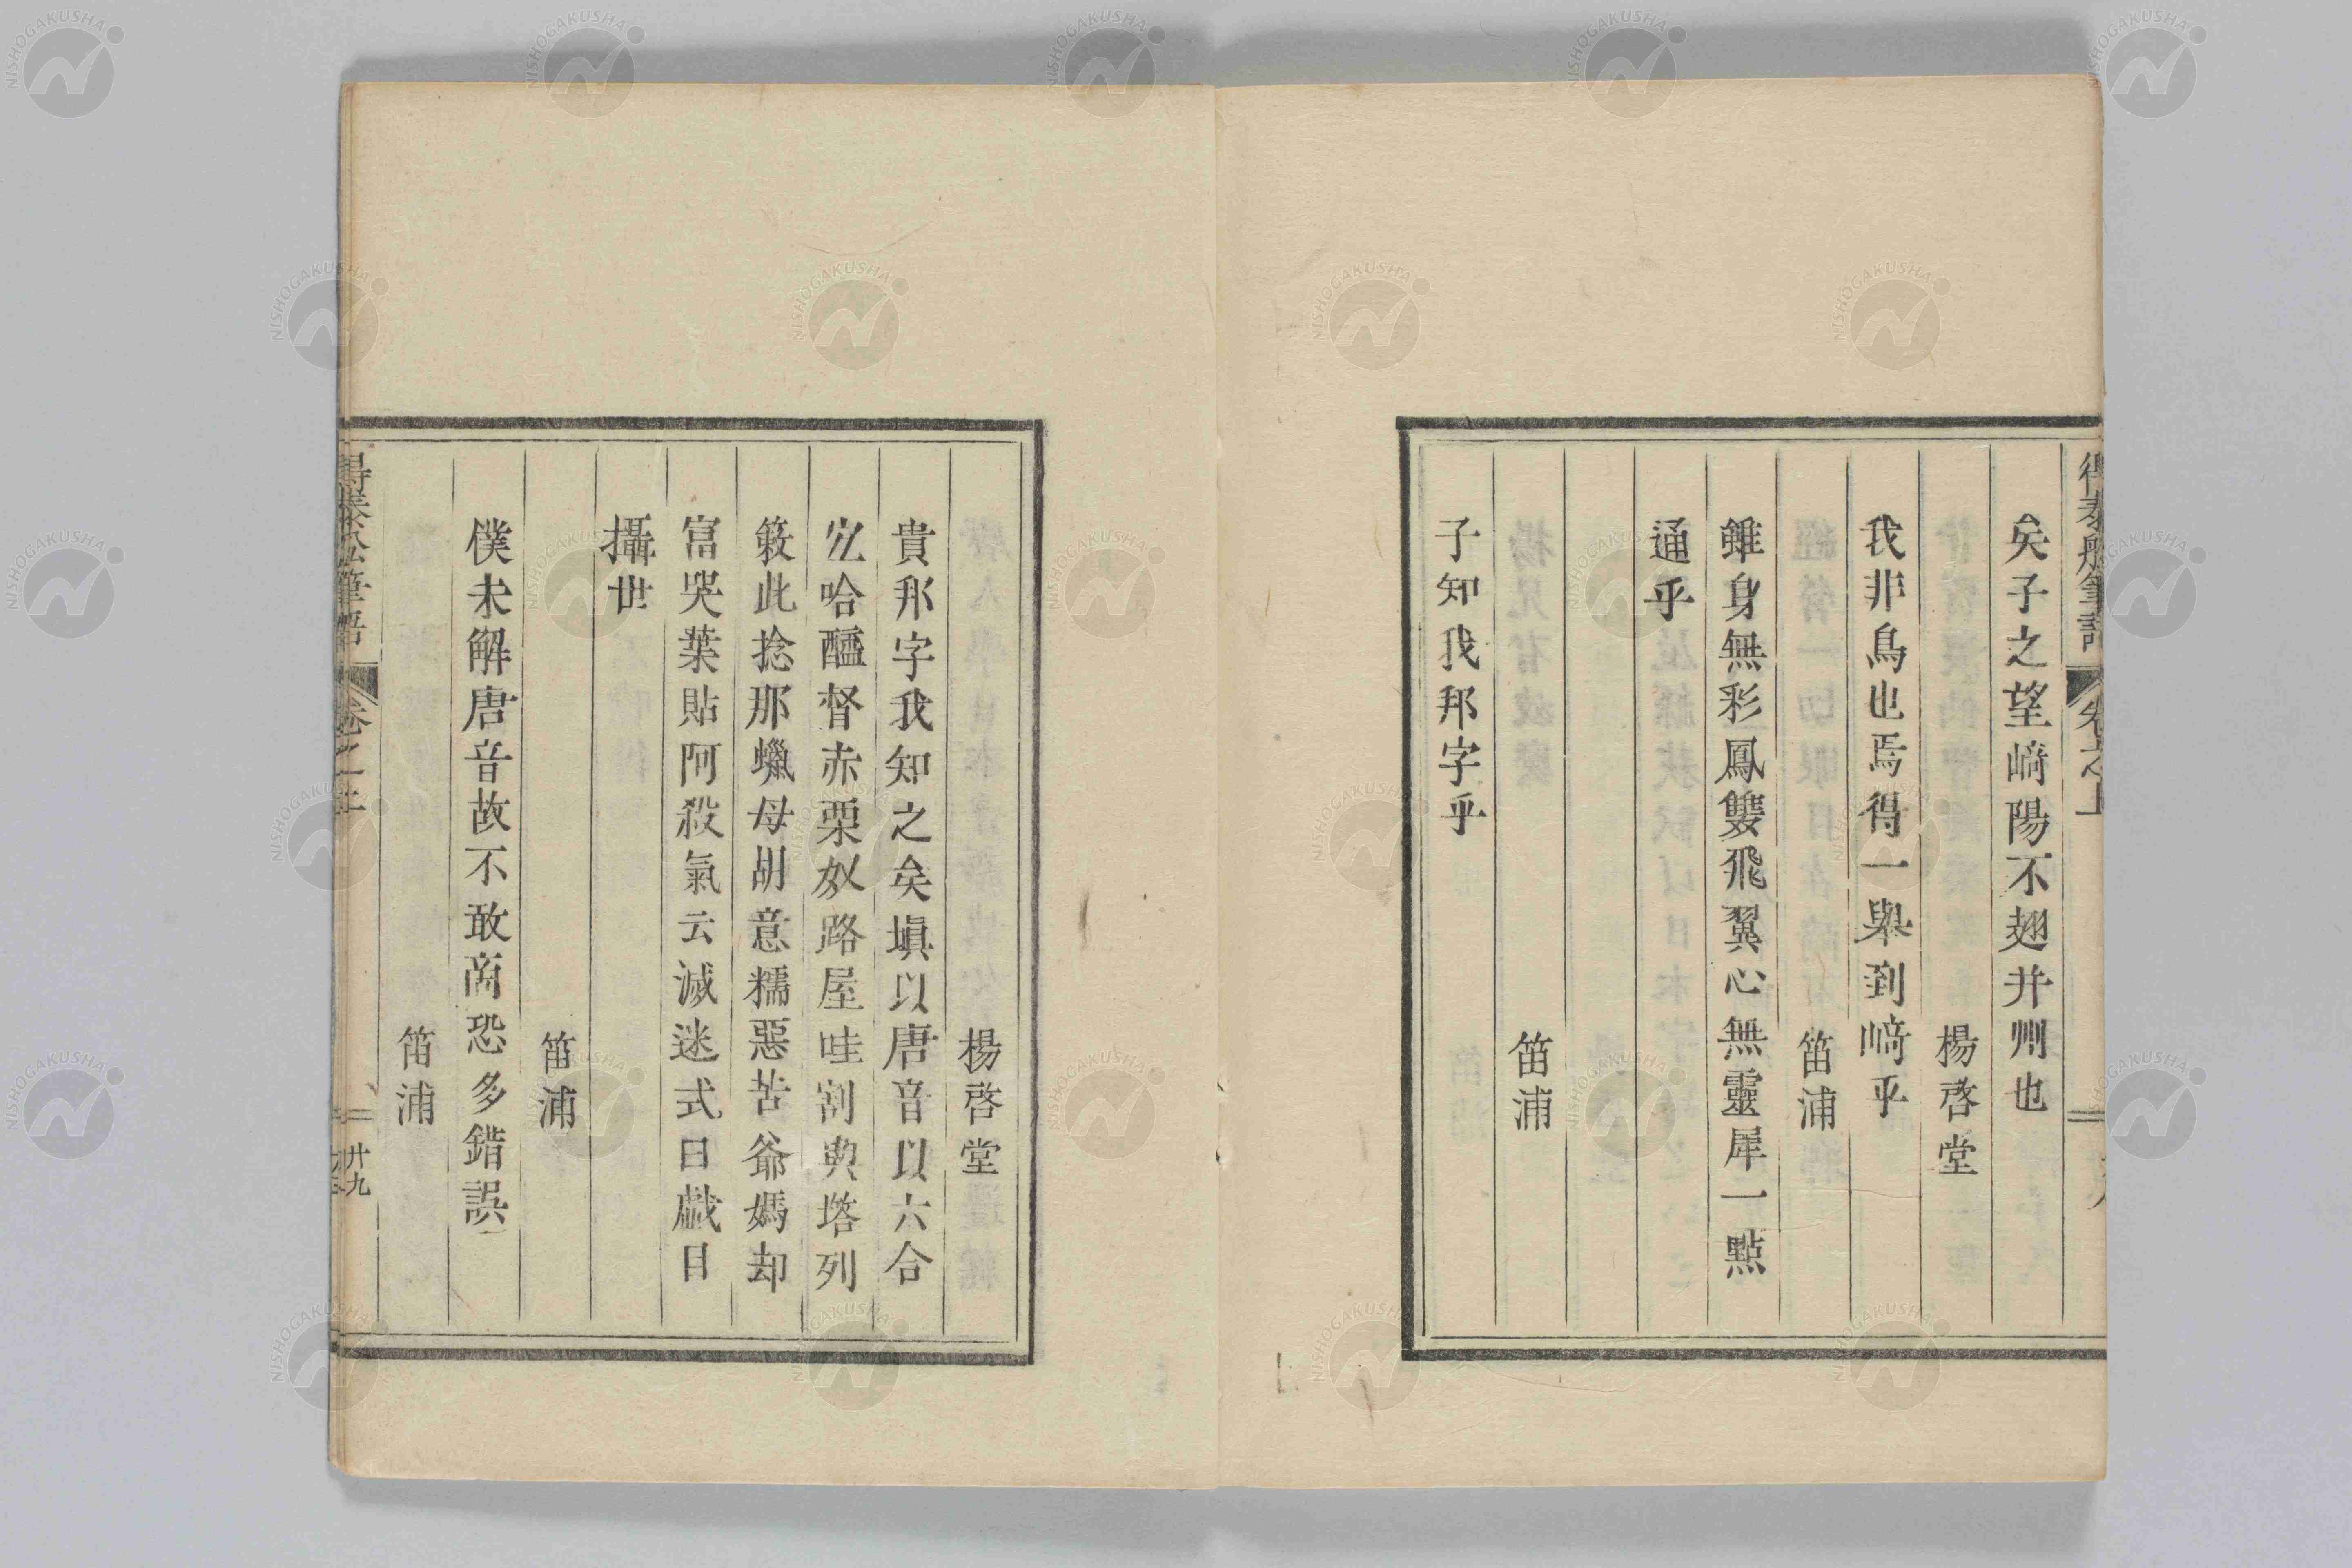 得泰船筆語 卷之上
矣子之望﨑陽不翅并州也
楊啓堂
我非鳥也焉得一舉到﨑乎
笛浦
雖身無彩鳳雙飛翼心無靈犀一點
通乎
笛浦
子知我邦字乎
楊啓堂
貴邦字我知之矣塡以唐音以六合
哈醯督赤栗奴路屋哇割輿塔列
簌此捻那蠟母胡意糯惡苦爺媽却
富哭葉貼阿殺氣云滅迷式曰戱日
攝世
笛浦
僕未解唐音故不敢啇恐多錯誤
笛浦
得泰船筆語 卷之上 廿九
NISHOGAKUSHA